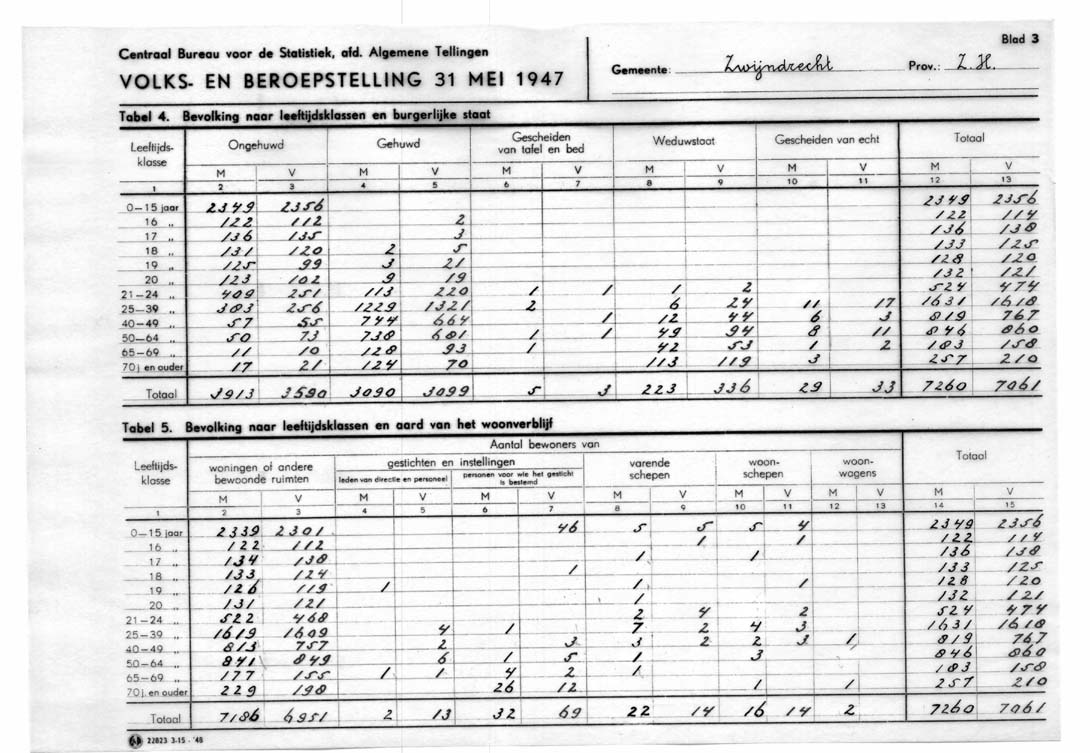 Centraal Bureau voor de Statistiek, afd. Algemene Tellingen
VOLKS- EN BEROEPSTELLING 31 MEI 1947
Gemeente: Zwijndrecht Prov.: Z.H.
Blad 3
Tabel 4. Bevolking naar leeftijdsklassen en burgerlijke staat
Leeftijds-klasse Ongehuwd Gehuwd Gescheiden van tafel en bed Weduwstaat Gescheiden van echt Totaal
M V M V M V M V M V M V
1 2 3 4 5 6 7 8 9 10 11 12 13
0—15 jaar 2349 2356 2349 2356
16 „ 122 112 2 122 114
17 „ 136 135 3 136 138
18 „ 131 120 2 5 133 125
19 „ 125 99 3 21 128 120
20 „ 123 102 9 19 132 121
21—24 „ 409 251 113 220 1 1 1 2 524 474
25—39 „ 383 256 1229 1321 2 6 24 11 17 1631 1618
40—49 „ 57 55 744 664 1 12 44 6 3 819 767
50—64 „ 50 73 738 681 1 1 49 94 8 11 846 860
65—69 „ 11 10 128 93 1 42 53 1 2 183 158
70 j. en ouder 17 21 124 70 113 119 3 257 210
Totaal 3913 3590 3090 3099 5 3 223 336 29 33 7260 7061
Tabel 5. Bevolking naar leeftijdsklassen en aard van het woonverblijf
Aantal bewoners van
Leeftijds-klasse woningen of andere bewoonde ruimten gestichten en instellingen varende schepen woon-schepen woon-wagens Totaal
leden van directie en personeel personen voor wie het gesticht is bestemd
M V M V M V M V M V M V M V
1 2 3 4 5 6 7 8 9 10 11 12 13 14 15
0—15 jaar 2339 2301 46 5 5 5 4 2349 2356
16 „ 122 112 1 1 122 114
17 „ 134 138 1 1 136 138
18 „ 133 124 1 133 125
19 „ 126 119 1 1 1 128 120
20 „ 131 121 1 132 121
21—24 „ 522 468 2 4 2 524 474
25—39 „ 1619 1609 4 1 7 2 4 3 1631 1618
40—49 „ 813 757 2 3 3 2 2 3 1 819 767
50—64 „ 841 849 6 1 5 1 3 846 860
65—69 „ 177 155 1 1 4 2 1 183 158
70 j. en ouder 229 198 26 12 1 1 257 210
Totaal 7186 6951 2 13 32 69 22 14 16 14 2 7260 7061
22823 3-15 - '48